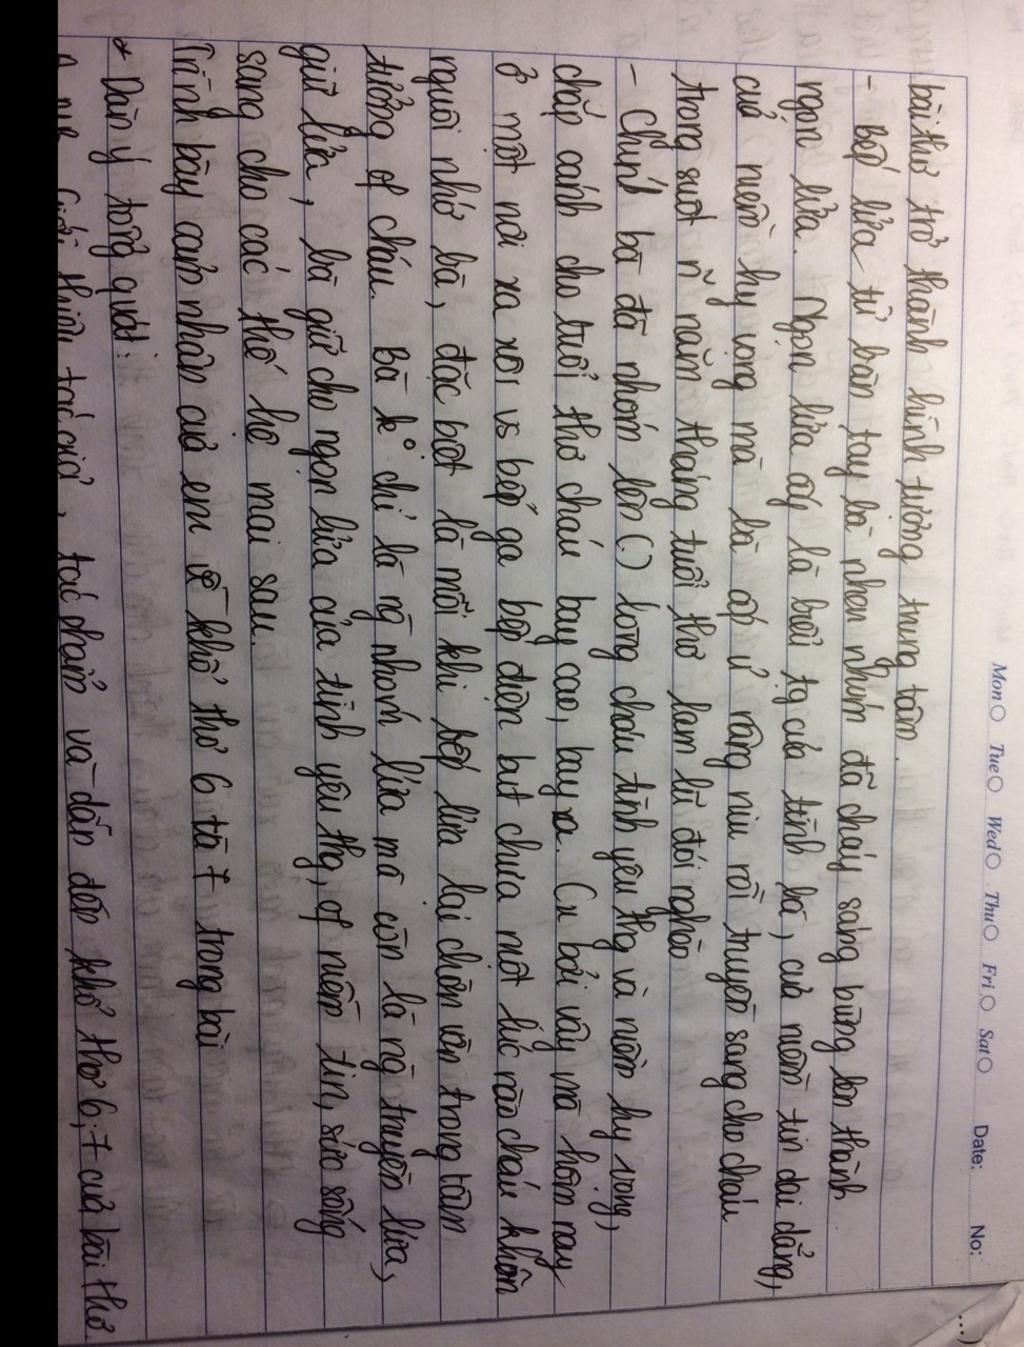 Mon Tue Wed Thu Fri Sat Date: No:
bài thơ trở thành hình tượng trung tâm.
- Bếp lửa từ bàn tay bà nhen nhóm đã cháy sáng bừng lên thành
ngọn lửa. Ngọn lửa ấy là bởi tg của tình bà, của niềm tin dai dẳng,
củ niềm hy vọng mà bà ấp ủ nâng niu rồi truyền sang cho cháu
trong suốt n~ năm tháng tuổi thơ lam lũ đói nghèo
- Chính bà đã nhóm lên () lòng cháu tình yêu thg và niềm hy vọng,
chắp cánh cho tuổi thơ cháu bay cao, bay xa. Cx bởi vậy mà hôm nay
ở một nơi xa xôi vs bếp ga bếp điện but chưa một lúc nào cháu khôn
nguôi nhớ bà, đặc biệt là mỗi khi bếp lửa lại chờn vờn trong tâm
tưởng of cháu. Bà ko chỉ là ng nhóm lửa mà còn là ng truyền lửa,
giữ lửa, bà giữ cho ngọn lửa của tình yêu thg, of niềm tin, sức sống
sang cho các thế hệ mai sau.
Trình bày cảm nhận của em về khổ thơ 6 và 7 trong bài
* Dàn ý tổng quát:
Giới thiệu tác giả, tác phẩm và dẫn dến khổ thơ 6, 7 của bài thơ.
...)